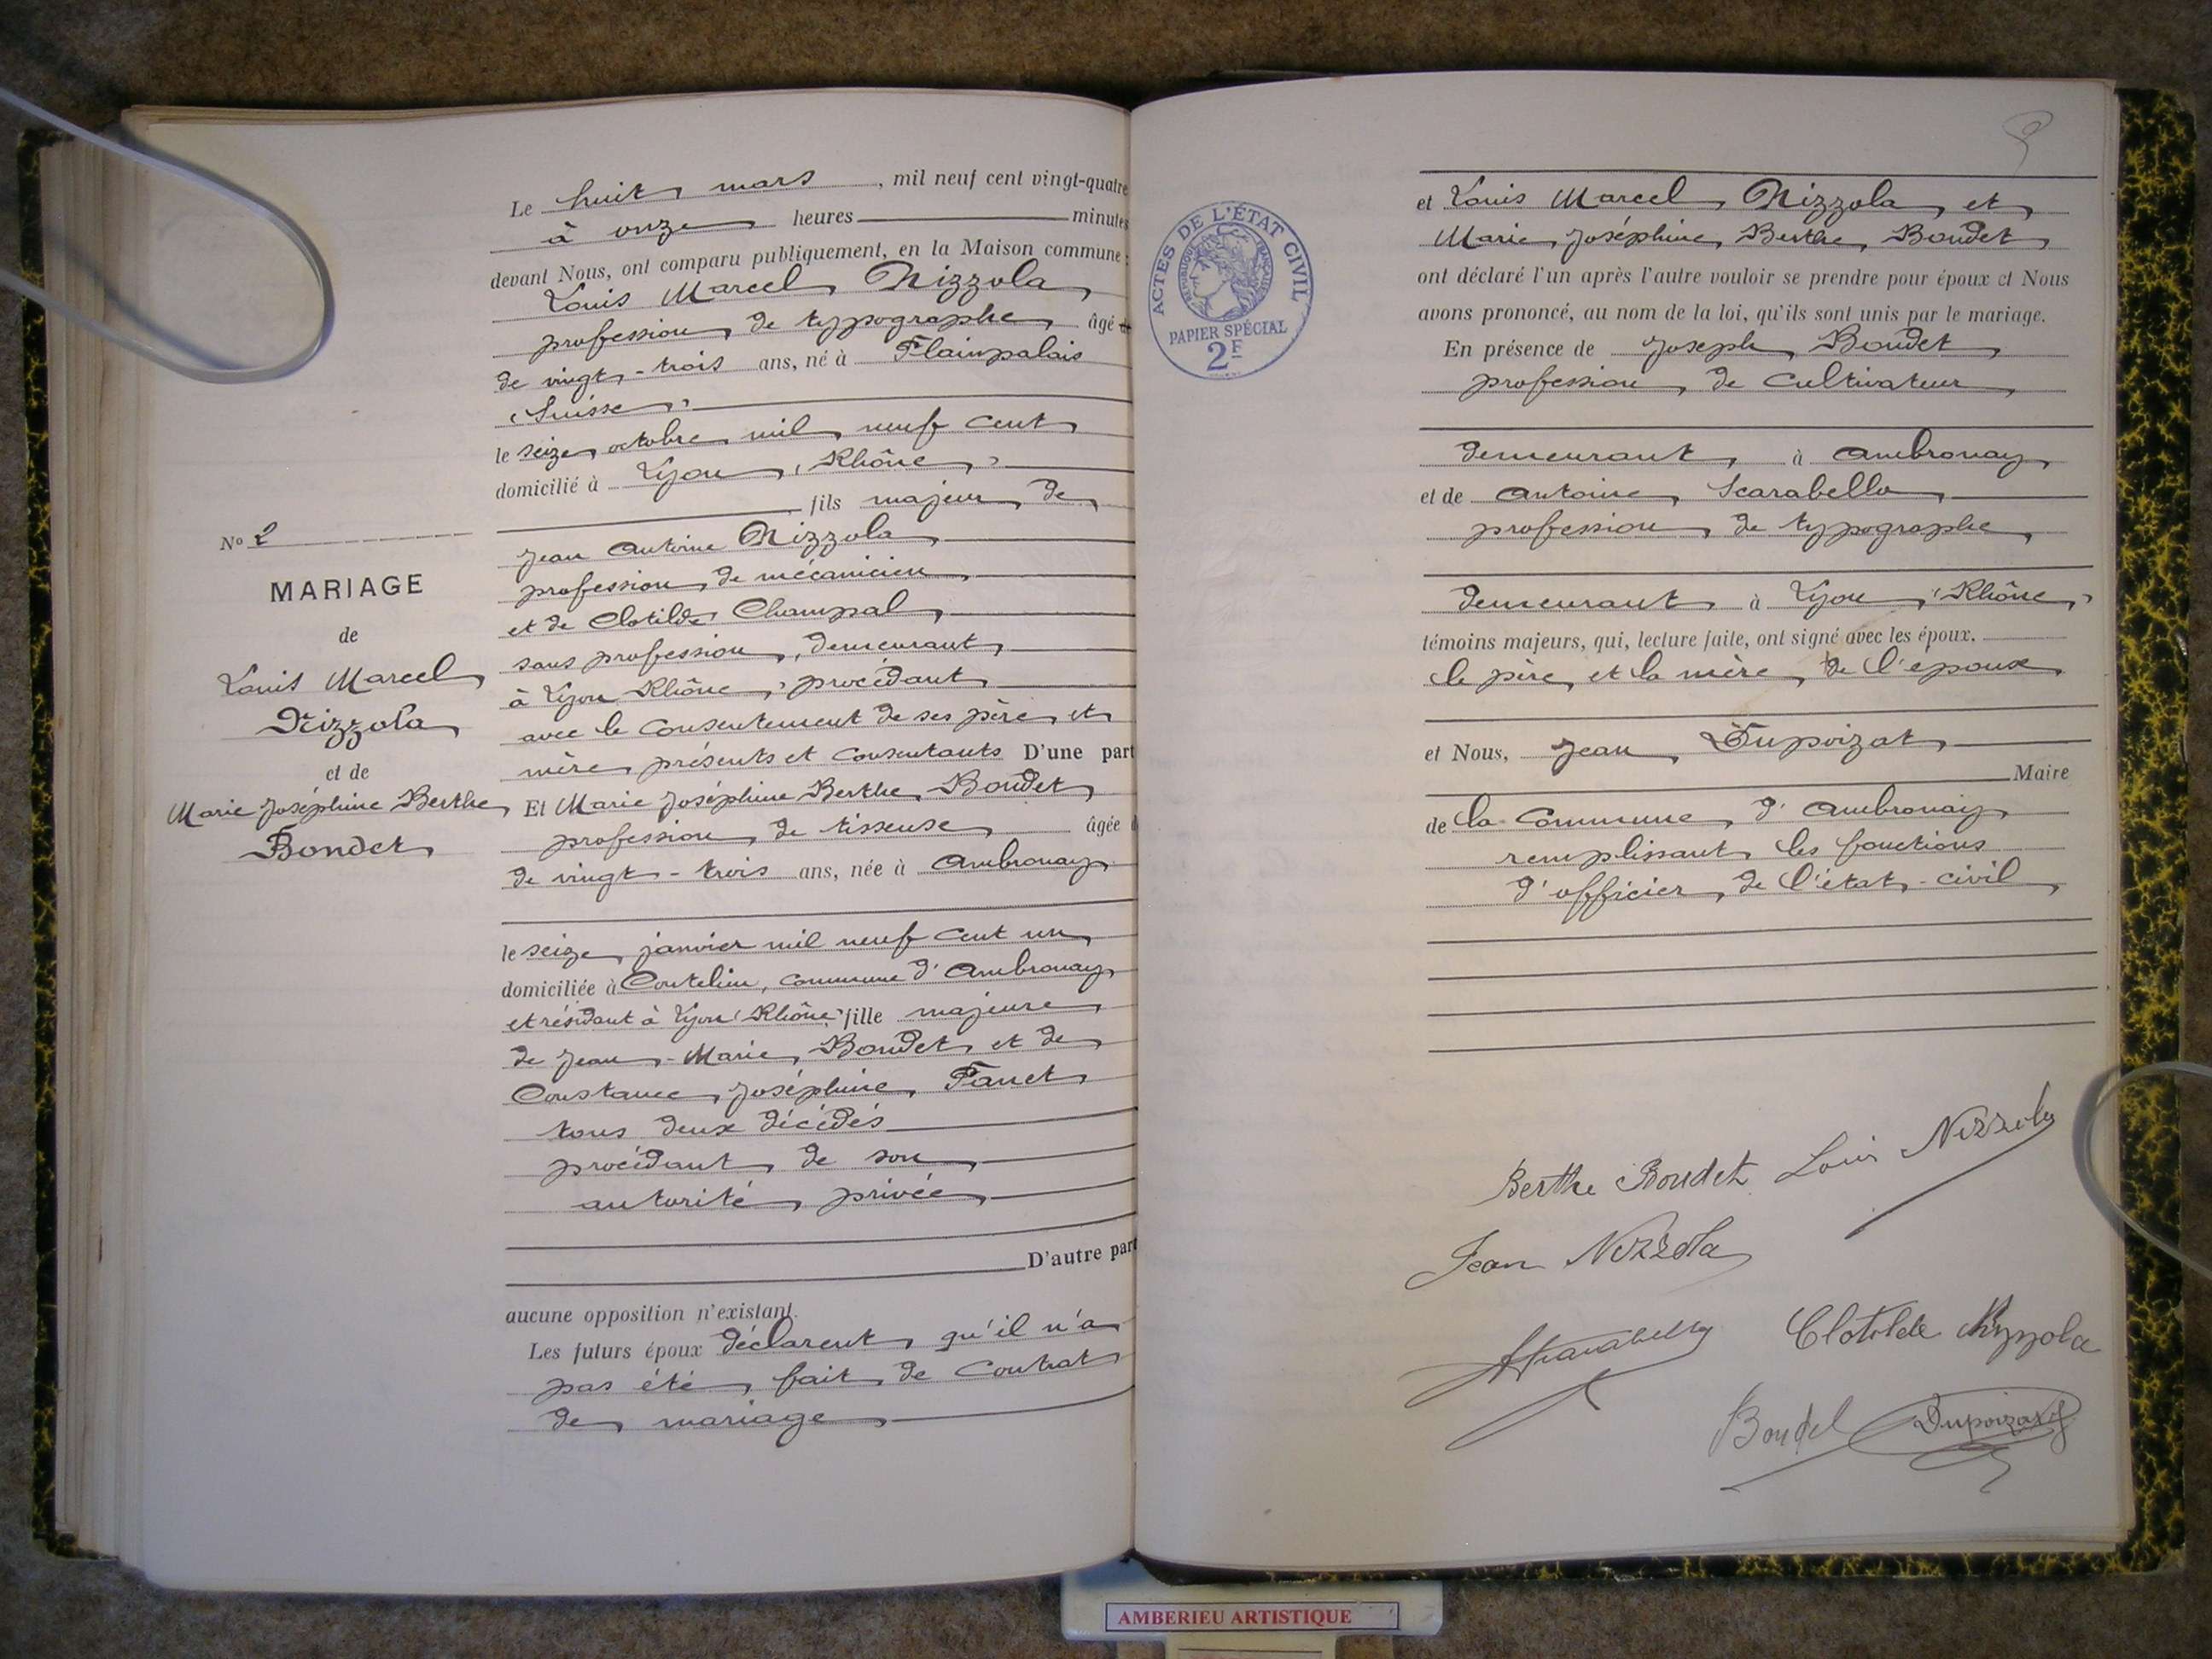 Le huit mars, mil neuf cent vingt-quatre
à onze heures minutes
devant Nous, ont comparu publiquement, en la Maison commune :
Louis Marcel Nizzola
profession de typographe âgé de
de vingt-trois ans, né à Plainpalais
(Suisse)
le seize octobre mil neuf cent
domicilié à Lyon (Rhône)
fils majeur de
Jean Antoine Nizzola
profession de mécanicien
et de Clotilde Champal
sans profession, demeurant
à Lyon (Rhône) procédant
avec le consentement de ses père et
mère présents et consentants D'une part
Et Marie Joséphine Berthe Boudet
profession de tisseuse âgée
de vingt-trois ans, née à Ambronay
le seize janvier mil neuf cent un
domiciliée à Coutelieu, commune d'Ambronay
et résidant à Lyon (Rhône) fille majeure
de Jean-Marie Boudet et de
Constance Joséphine Panet
tous deux décédés
procédant de son
autorité privée
D'autre part
aucune opposition n'existant.
Les futurs époux déclarent qu'il n'a
pas été fait de contrat
de mariage
No 2
MARIAGE
de
Louis Marcel
Nizzola
et de
Marie Joséphine Berthe
Boudet
ACTES DE L'ÉTAT CIVIL
RÉPUBLIQUE FRANÇAISE
PAPIER SPÉCIAL
2F
et Louis Marcel Nizzola et
Marie Joséphine Berthe Boudet
ont déclaré l'un après l'autre vouloir se prendre pour époux et Nous
avons prononcé, au nom de la loi, qu'ils sont unis par le mariage.
En présence de Joseph Boudet
profession de cultivateur
demeurant à Ambronay
et de Antoine Scarabello
profession de typographe
demeurant à Lyon (Rhône)
témoins majeurs, qui, lecture faite, ont signé avec les époux.
le père et la mère de l'époux
et Nous, Jean Dupoizat
Maire
de la Commune d'Ambronay
remplissant les fonctions
d'officier de l'état-civil
Berthe Boudet Louis Nizzola
Jean Nizzola
Clotilde Nizzola
Boudet Dupoizat
AMBERIEU ARTISTIQUE